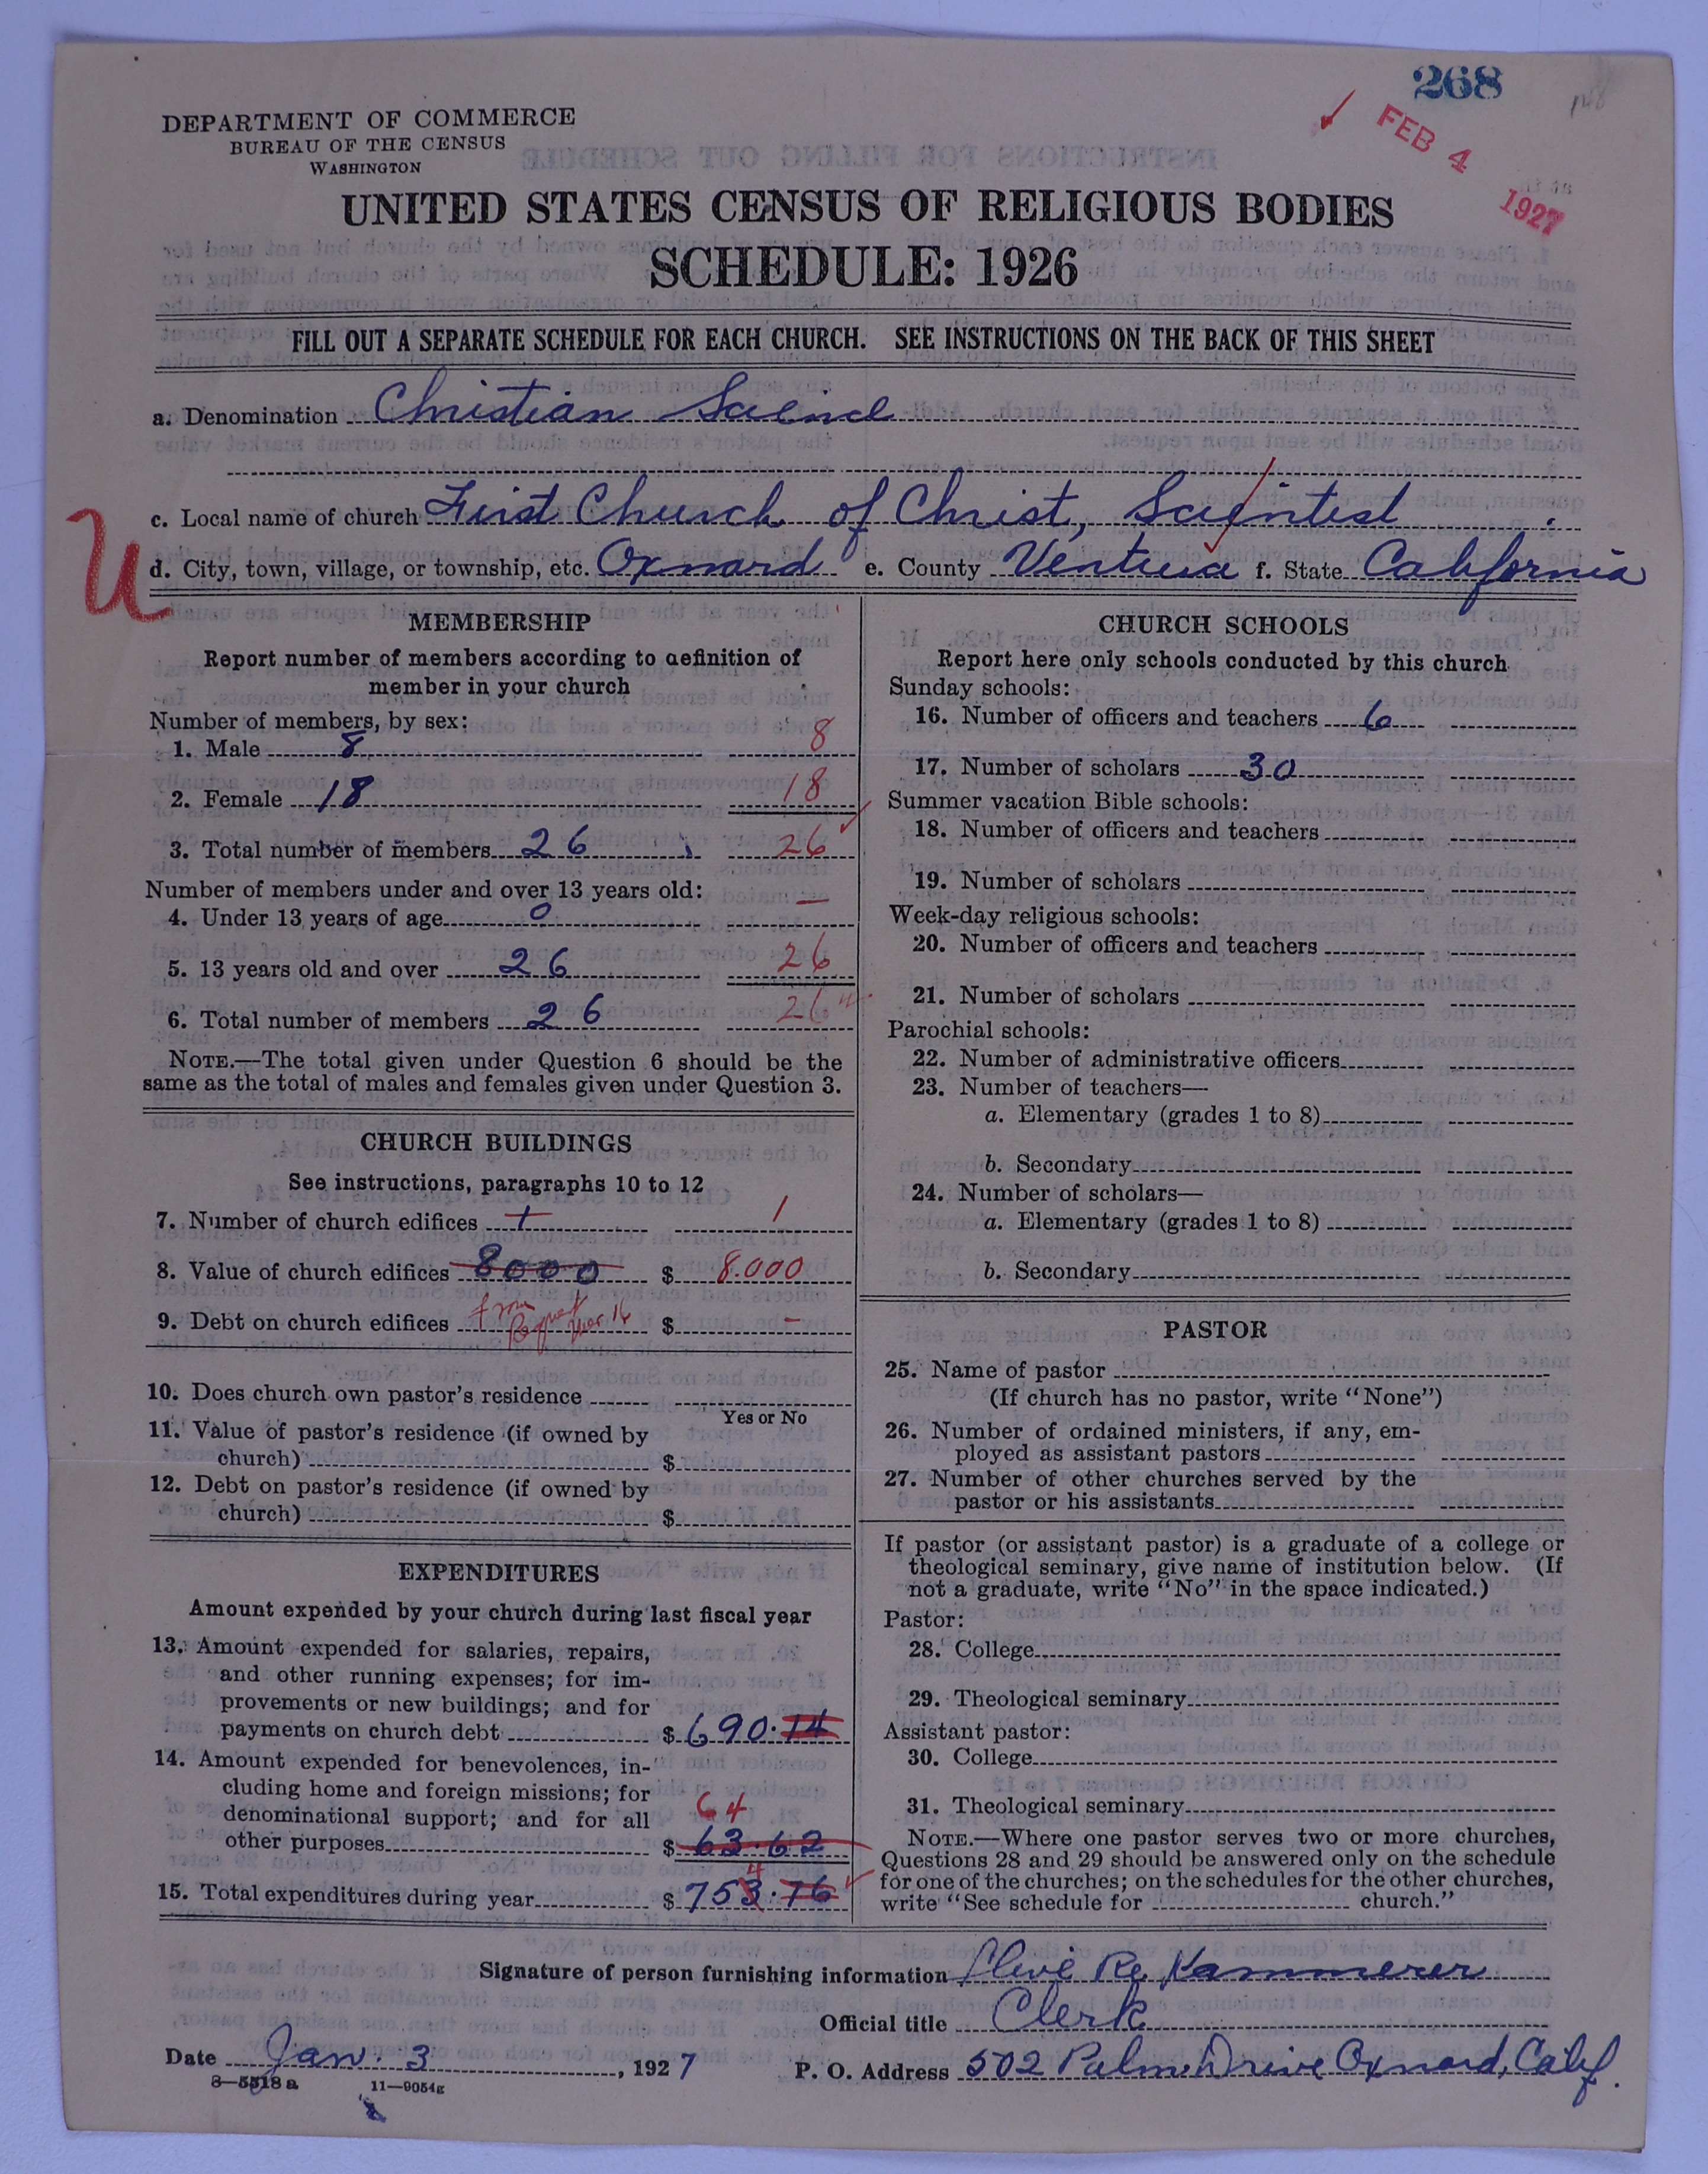 268
FEB 4 1927
DEPARTMENT OF COMMERCE
BUREAU OF THE CENSUS
WASHINGTON
UNITED STATES CENSUS OF RELIGIOUS BODIES
SCHEDULE: 1926
FILL OUT A SEPARATE SCHEDULE FOR EACH CHURCH. SEE INSTRUCTIONS ON THE BACK OF THIS SHEET
a. Denomination Christian Science
c. Local name of church First Church of Christ, Scientist
U
d. City, town, village, or township, etc. Oxnard e. County Ventura f. State California
MEMBERSHIP
Report number of members according to definition of
member in your church
Number of members, by sex:
1. Male 8 8
2. Female 18 18
3. Total number of members 26 26
Number of members under and over 13 years old:
4. Under 13 years of age 0 —
5. 13 years old and over 26 26
6. Total number of members 26 26
NOTE.—The total given under Question 6 should be the
same as the total of males and females given under Question 3.
CHURCH BUILDINGS
See instructions, paragraphs 10 to 12
7. Number of church edifices 1 1
8. Value of church edifices 8000 $ 8.000
9. Debt on church edifices $ -
10. Does church own pastor's residence
Yes or No
11. Value of pastor's residence (if owned by
church) $
12. Debt on pastor's residence (if owned by
church) $
EXPENDITURES
Amount expended by your church during last fiscal year
13. Amount expended for salaries, repairs,
and other running expenses; for im-
provements or new buildings; and for
payments on church debt $ 690.14
14. Amount expended for benevolences, in-
cluding home and foreign missions; for
denominational support; and for all
64
other purposes $ 63.62
4
15. Total expenditures during year $ 753.76
CHURCH SCHOOLS
Report here only schools conducted by this church
Sunday schools:
16. Number of officers and teachers 6
17. Number of scholars 30
Summer vacation Bible schools:
18. Number of officers and teachers
19. Number of scholars
Week-day religious schools:
20. Number of officers and teachers
21. Number of scholars
Parochial schools:
22. Number of administrative officers
23. Number of teachers—
a. Elementary (grades 1 to 8)
b. Secondary
24. Number of scholars—
a. Elementary (grades 1 to 8)
b. Secondary
PASTOR
25. Name of pastor
(If church has no pastor, write "None")
26. Number of ordained ministers, if any, em-
ployed as assistant pastors
27. Number of other churches served by the
pastor or his assistants
If pastor (or assistant pastor) is a graduate of a college or
theological seminary, give name of institution below. (If
not a graduate, write "No" in the space indicated.)
Pastor:
28. College
29. Theological seminary
Assistant pastor:
30. College
31. Theological seminary
NOTE.—Where one pastor serves two or more churches,
Questions 28 and 29 should be answered only on the schedule
for one of the churches; on the schedules for the other churches,
write "See schedule for church."
Signature of person furnishing information Kammerer
Official title Clerk
Date Jan. 3, 1927 P. O. Address 502 Palm Drive Oxnard, Calif.
8—5518 a 11—9054g